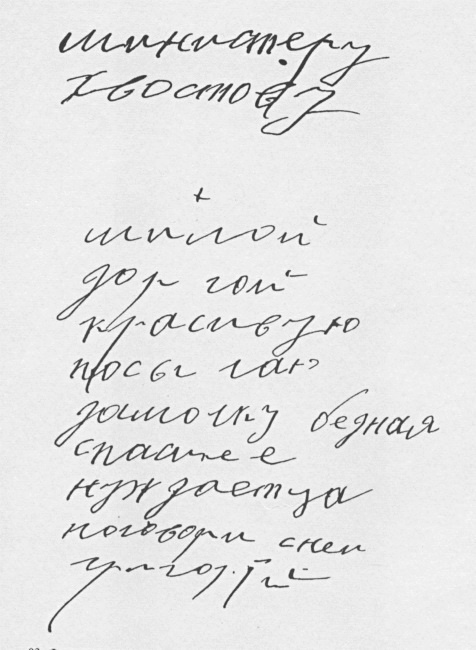 министеру
хвостову
+
милой
дор гой
красивую
посы лаю
дамочку бедная
спаси ее
нуждаетца
поговори сней
григорий